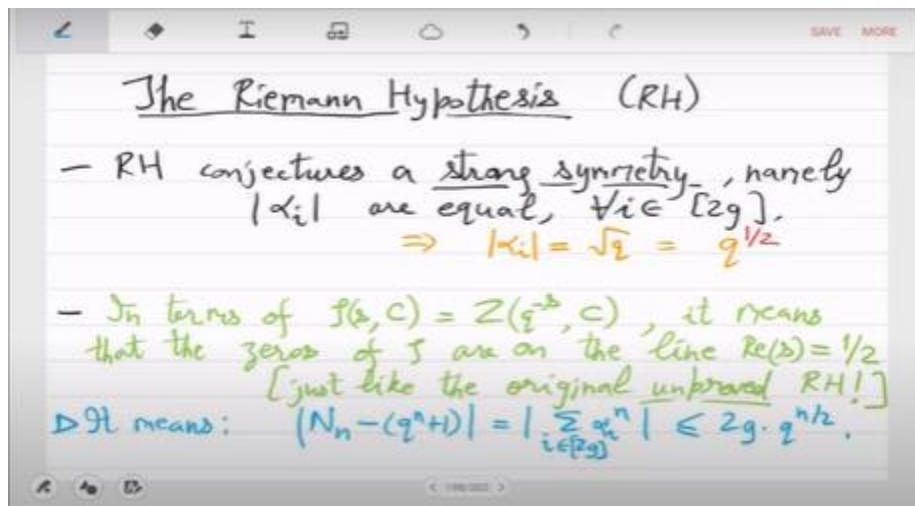 SAVE MORE
The Riemann Hypothesis (RH)
- RH conjectures a strong symmetry, namely
|α_i| are equal, ∀i∈ [2g].
⇒ |α_i| = √q = q^{1/2}
- In terms of ζ(s, C) = Z(q^{-s}, C), it means
that the zeros of ζ are on the line Re(s) = 1/2
[just like the original unproved RH!]
▷ It means: |N_n - (q^n+1)| = |∑_{i∈[2g]} α_i^n| ≤ 2g. q^{n/2}.